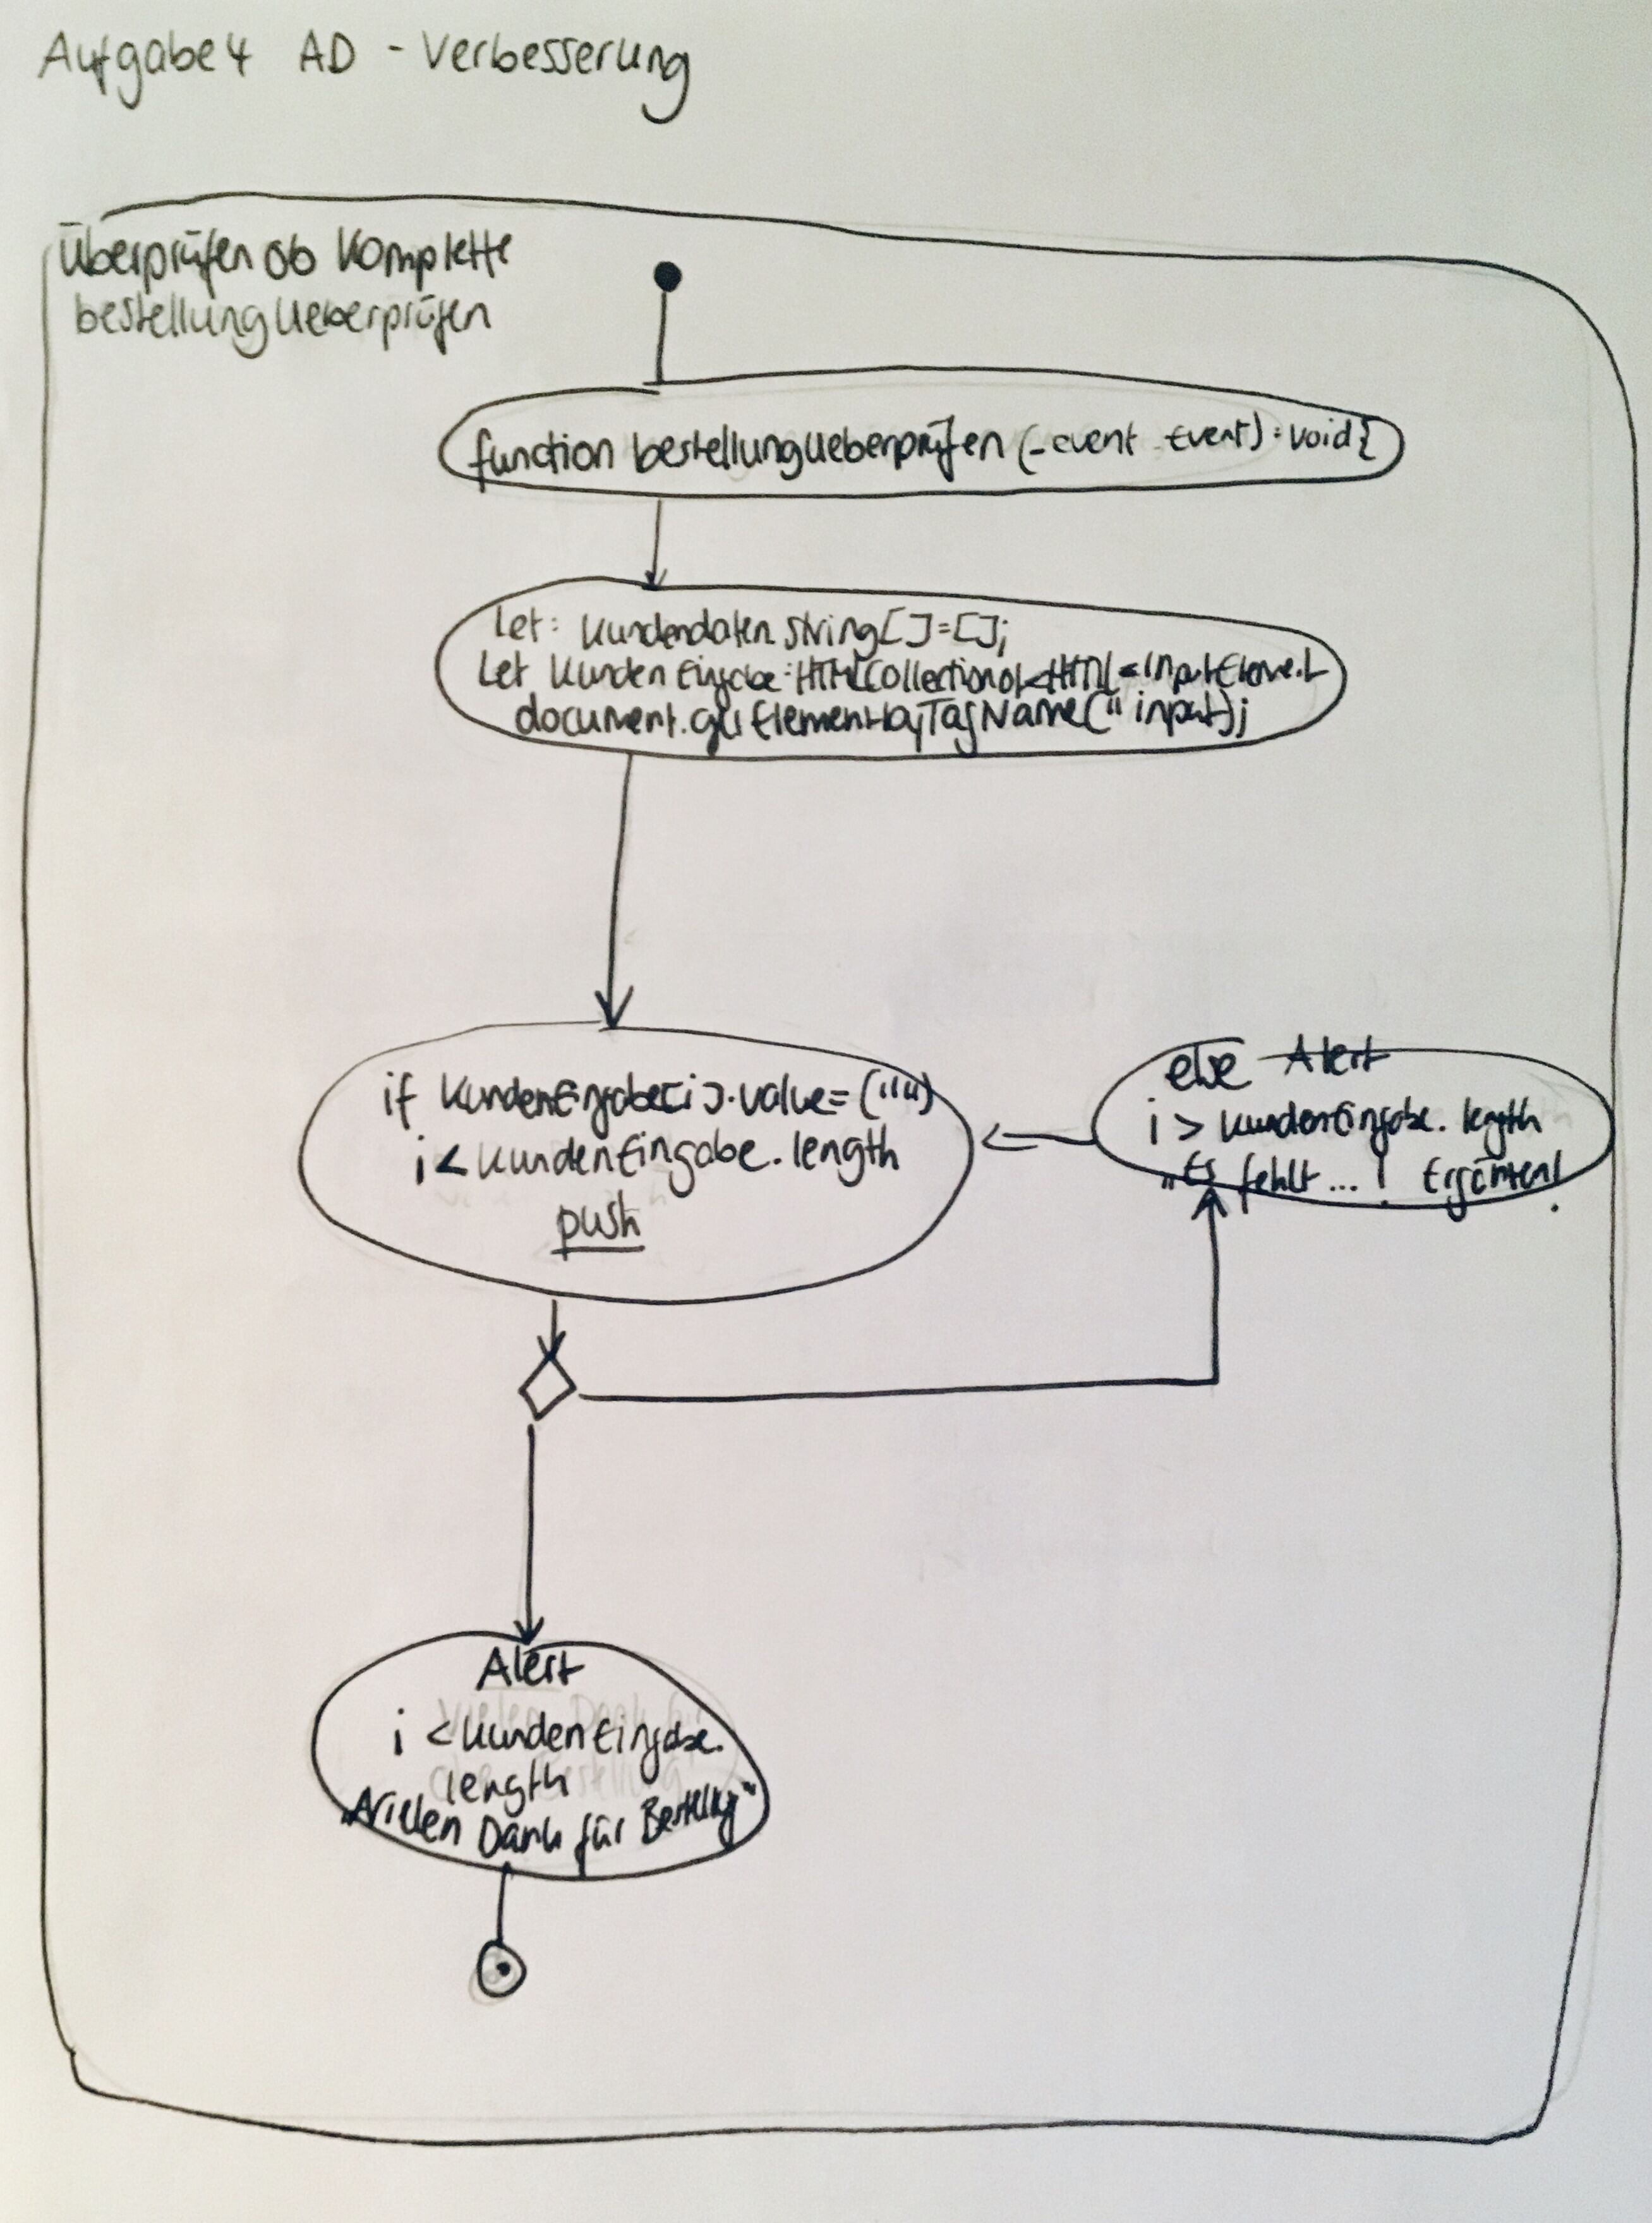 Aufgabe 4 AD - Verbesserung
Überprüfen ob Komplette
bestellungUeberprüfen
function bestellungUeberprüfen (_event Event) : void {
Let: Kundendaten string [] = [];
Let KundenEingabe : HTMLCollectionOf<HTML = InputElement
document.getElementsbyTagName(" input);
if KundenEingabe[i].value = ("")
i < KundenEingabe.length
push
else Alert
i > KundenEingabe.length
"Es fehlt ... ! Ergänzen!
Alert
i < KundenEingabe.
length
"Vielen Dank für Bestellung"